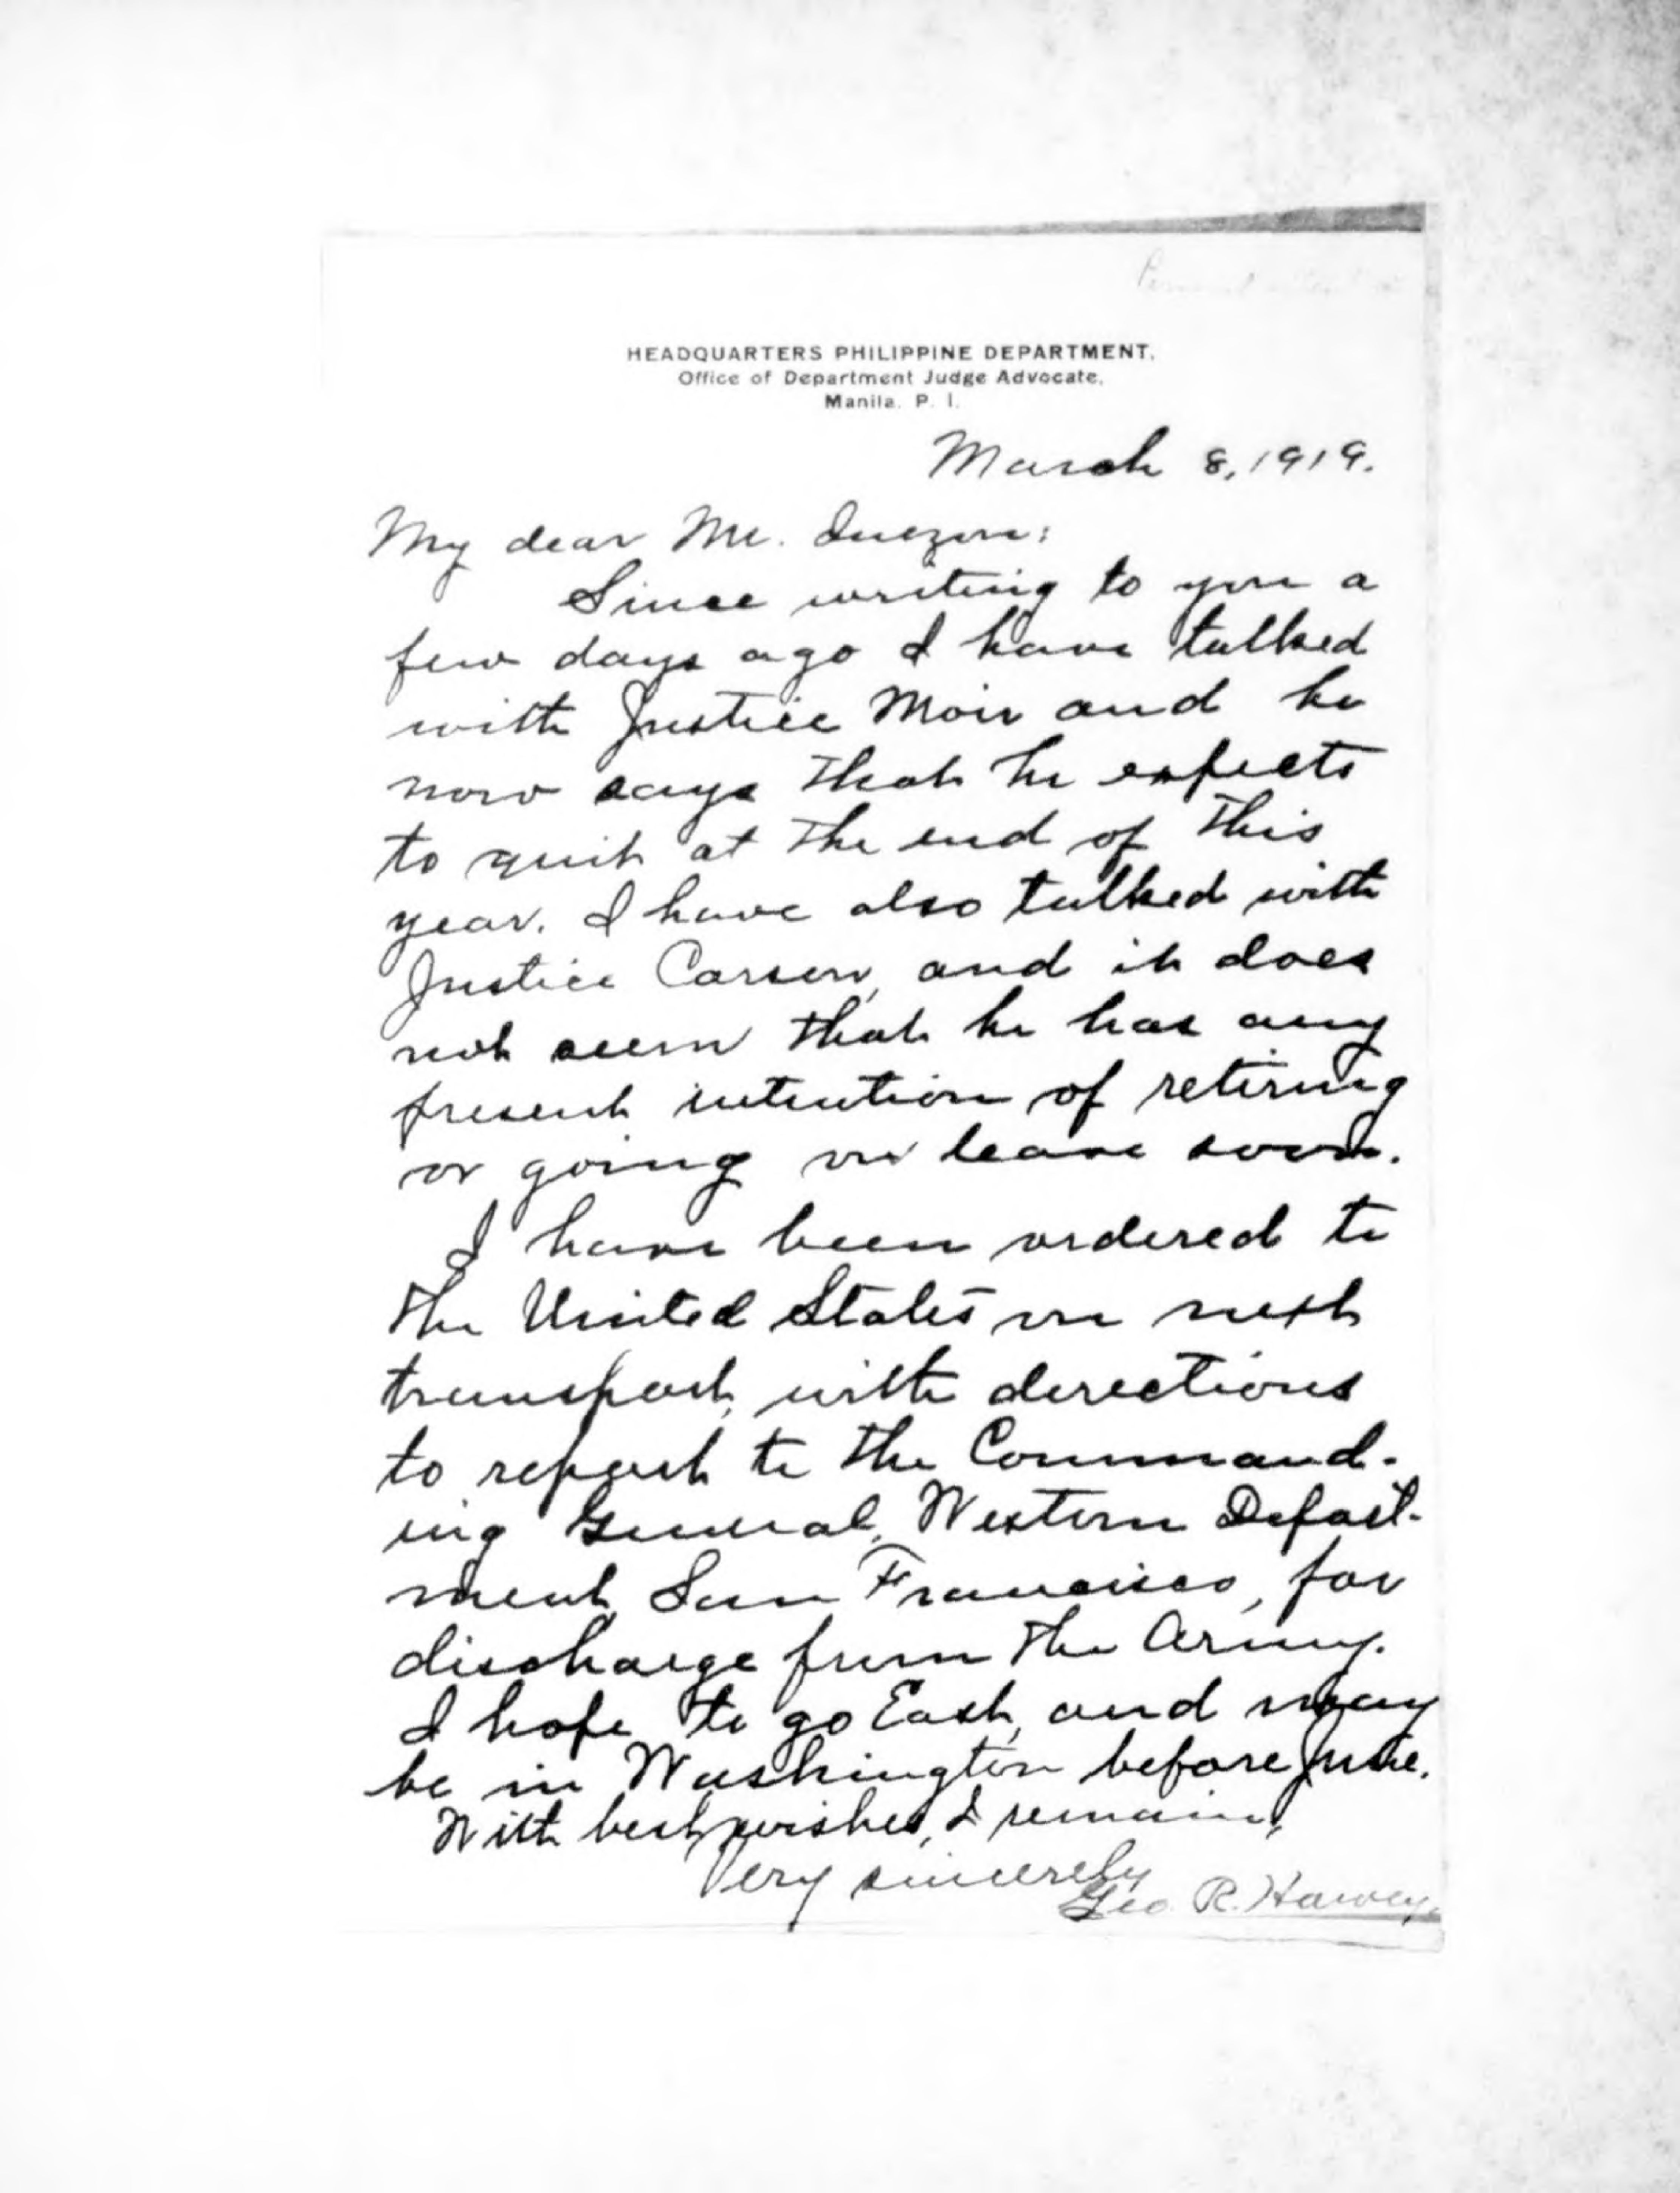 HEADQUARTERS PHILIPPINE DEPARTMENT,
Office of Department Judge Advocate,
Manila. P. I.
March 8, 1919.
My dear Mr. Quezon:
Since writing to you a
few days ago I have talked
with Justice Moir and he
now says that he expects
to quit at the end of this
year. I have also talked with
Justice Carson, and it does
not seem that he has any
present intention of retiring
or going on leave soon.
I have been ordered to
the United States on next
transport, with directions
to report to the Command-
ing General, Western Depart-
ment, San Francisco, for
discharge from the Army.
I hope to go East, and may
be in Washington before June.
With best wishes, I remain,
Very sincerely
Geo. R. Harvey.